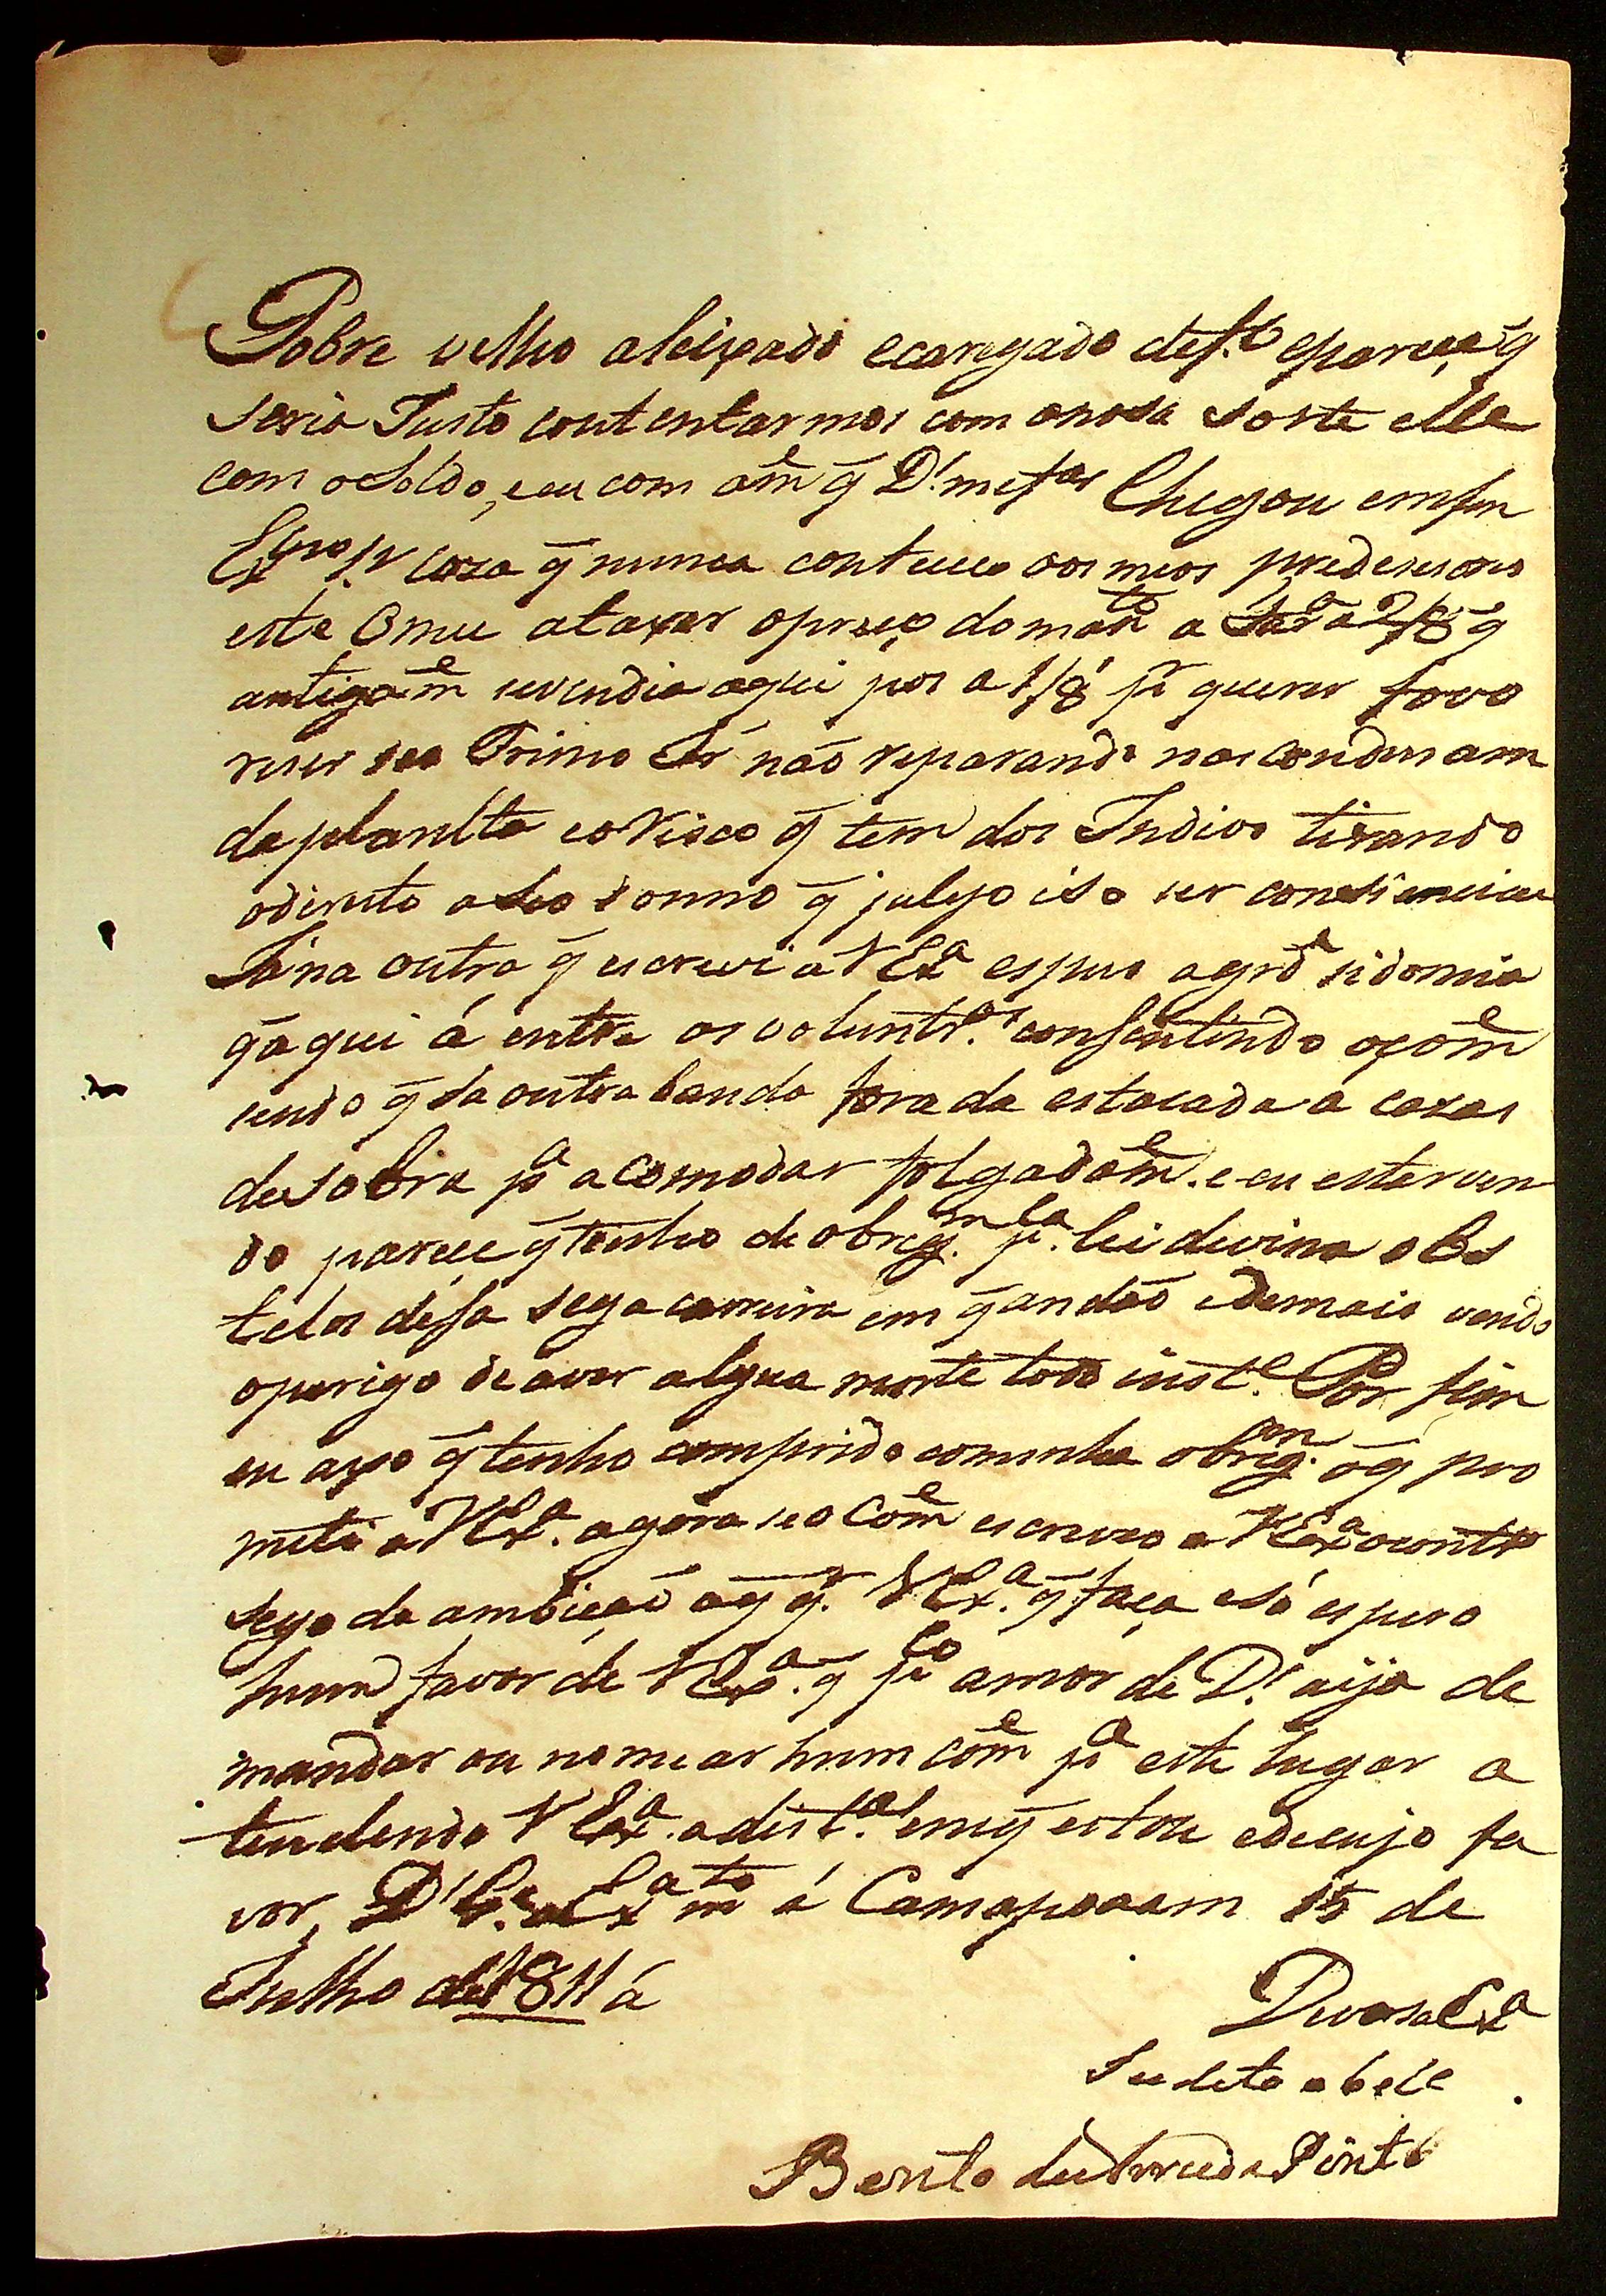 Pobre velho aleixado ecaregado def.ᵒˢ eparece q̃
seria Justo contentarmos com anosa sorte elle
com oSoldo, eeu com om̃ᵉ q̃ D.ˢ mefas Chegou emfim
Exᵐᵒ Sʳ coza q̃ nunca conteceo aos meos predesesores
este Omẽ ataxar opreço domañᵗᵒ a 2/8 q̃
antigam̃ᵉ sevendia aqui por a 1/8 p̃ querer favo
reser seo Primo não reparando nas condusam
da planlta eoRisco q̃ tem dos Indios tirando
odireito aSeo donno q̃ julgo iso ser consiencia
Já na outra q̃ escrevi a VExᵃ espus agrd̃ᵉ sidomia
q̃aqui á entre os voluntr.ᵒˢ consentindo oCom̃ᵉ
sendo q̃ da outra banda fora da estacada a cazas
deSobra p̃ᵃ aComodar folgadam̃ᵉ. e eu estarven
do parece q̃tenho de obrig.ᵐ p.ˡᵃ lei divina obs
telos desa sega carreira em q̃andão edemais vendo
operigo deaver algua morte todo inst.ᵉ Por fim
eu axo q̃tenho comprido cominha obrig.ᵐ oq̃ pro
meti a VExᵃ. agora seo Com̃ᵉ escreveo a VExᵃ ocontro
sego da ambição aq̃ q̃. VExᵃ. q̃ faça eSó espero
hum favor de VExᵃ. q̃ p̃ˡᵒ amor de D.ˢ aija de
mandar ou nomear hum Com̃ᵉ p̃ᵃ este lugar a
tendendo VExᵃ. adist.ᵃˢ emq̃ estou edecujo fa
vor, D.ˢ G.ᵉ aExᵃ m̃ᵗᵒ á Camapoaam 15 de
Julho de1811 á
DevosaExᵃ
Sudito obdᵉ
Bento deArruda Pinto